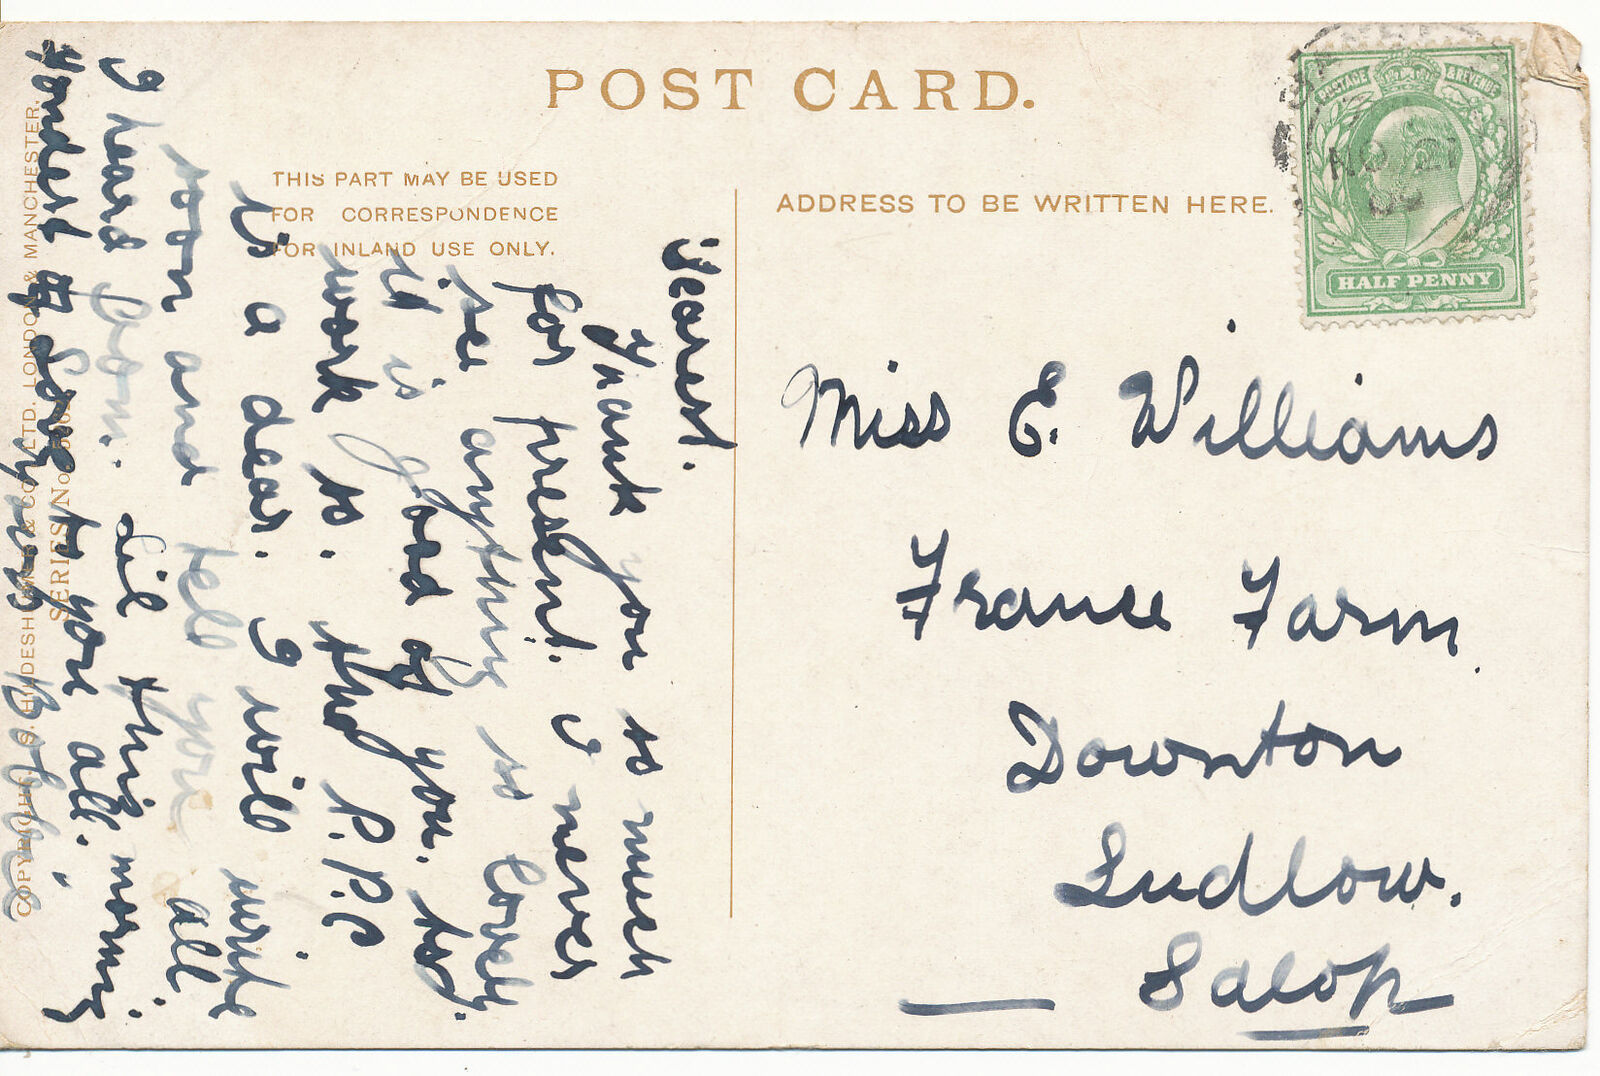 POST CARD.
THIS PART MAY BE USED
FOR CORRESPONDENCE
FOR INLAND USE ONLY.
ADDRESS TO BE WRITTEN HERE.
POSTAGE & REVENUE
HALF PENNY
NO 21
Dearest.
Thank you so much
for present. I never
see anything so lovely.
it is good of you. to
work so. the P.P.C
is a dear. I will write
soon and tell you all.
I heard from. Lil this morning.
Fondest Love to you all.
Miss E. Williams
France Farm.
Downton
Ludlow.
Salop
COPYRIGHT. S. HILDESHEIMER & CO. LTD. LONDON & MANCHESTER.
SERIES No